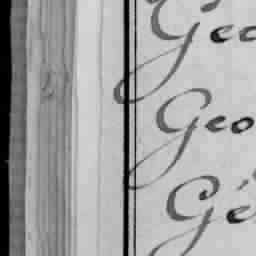 Geo
Geo
Gé